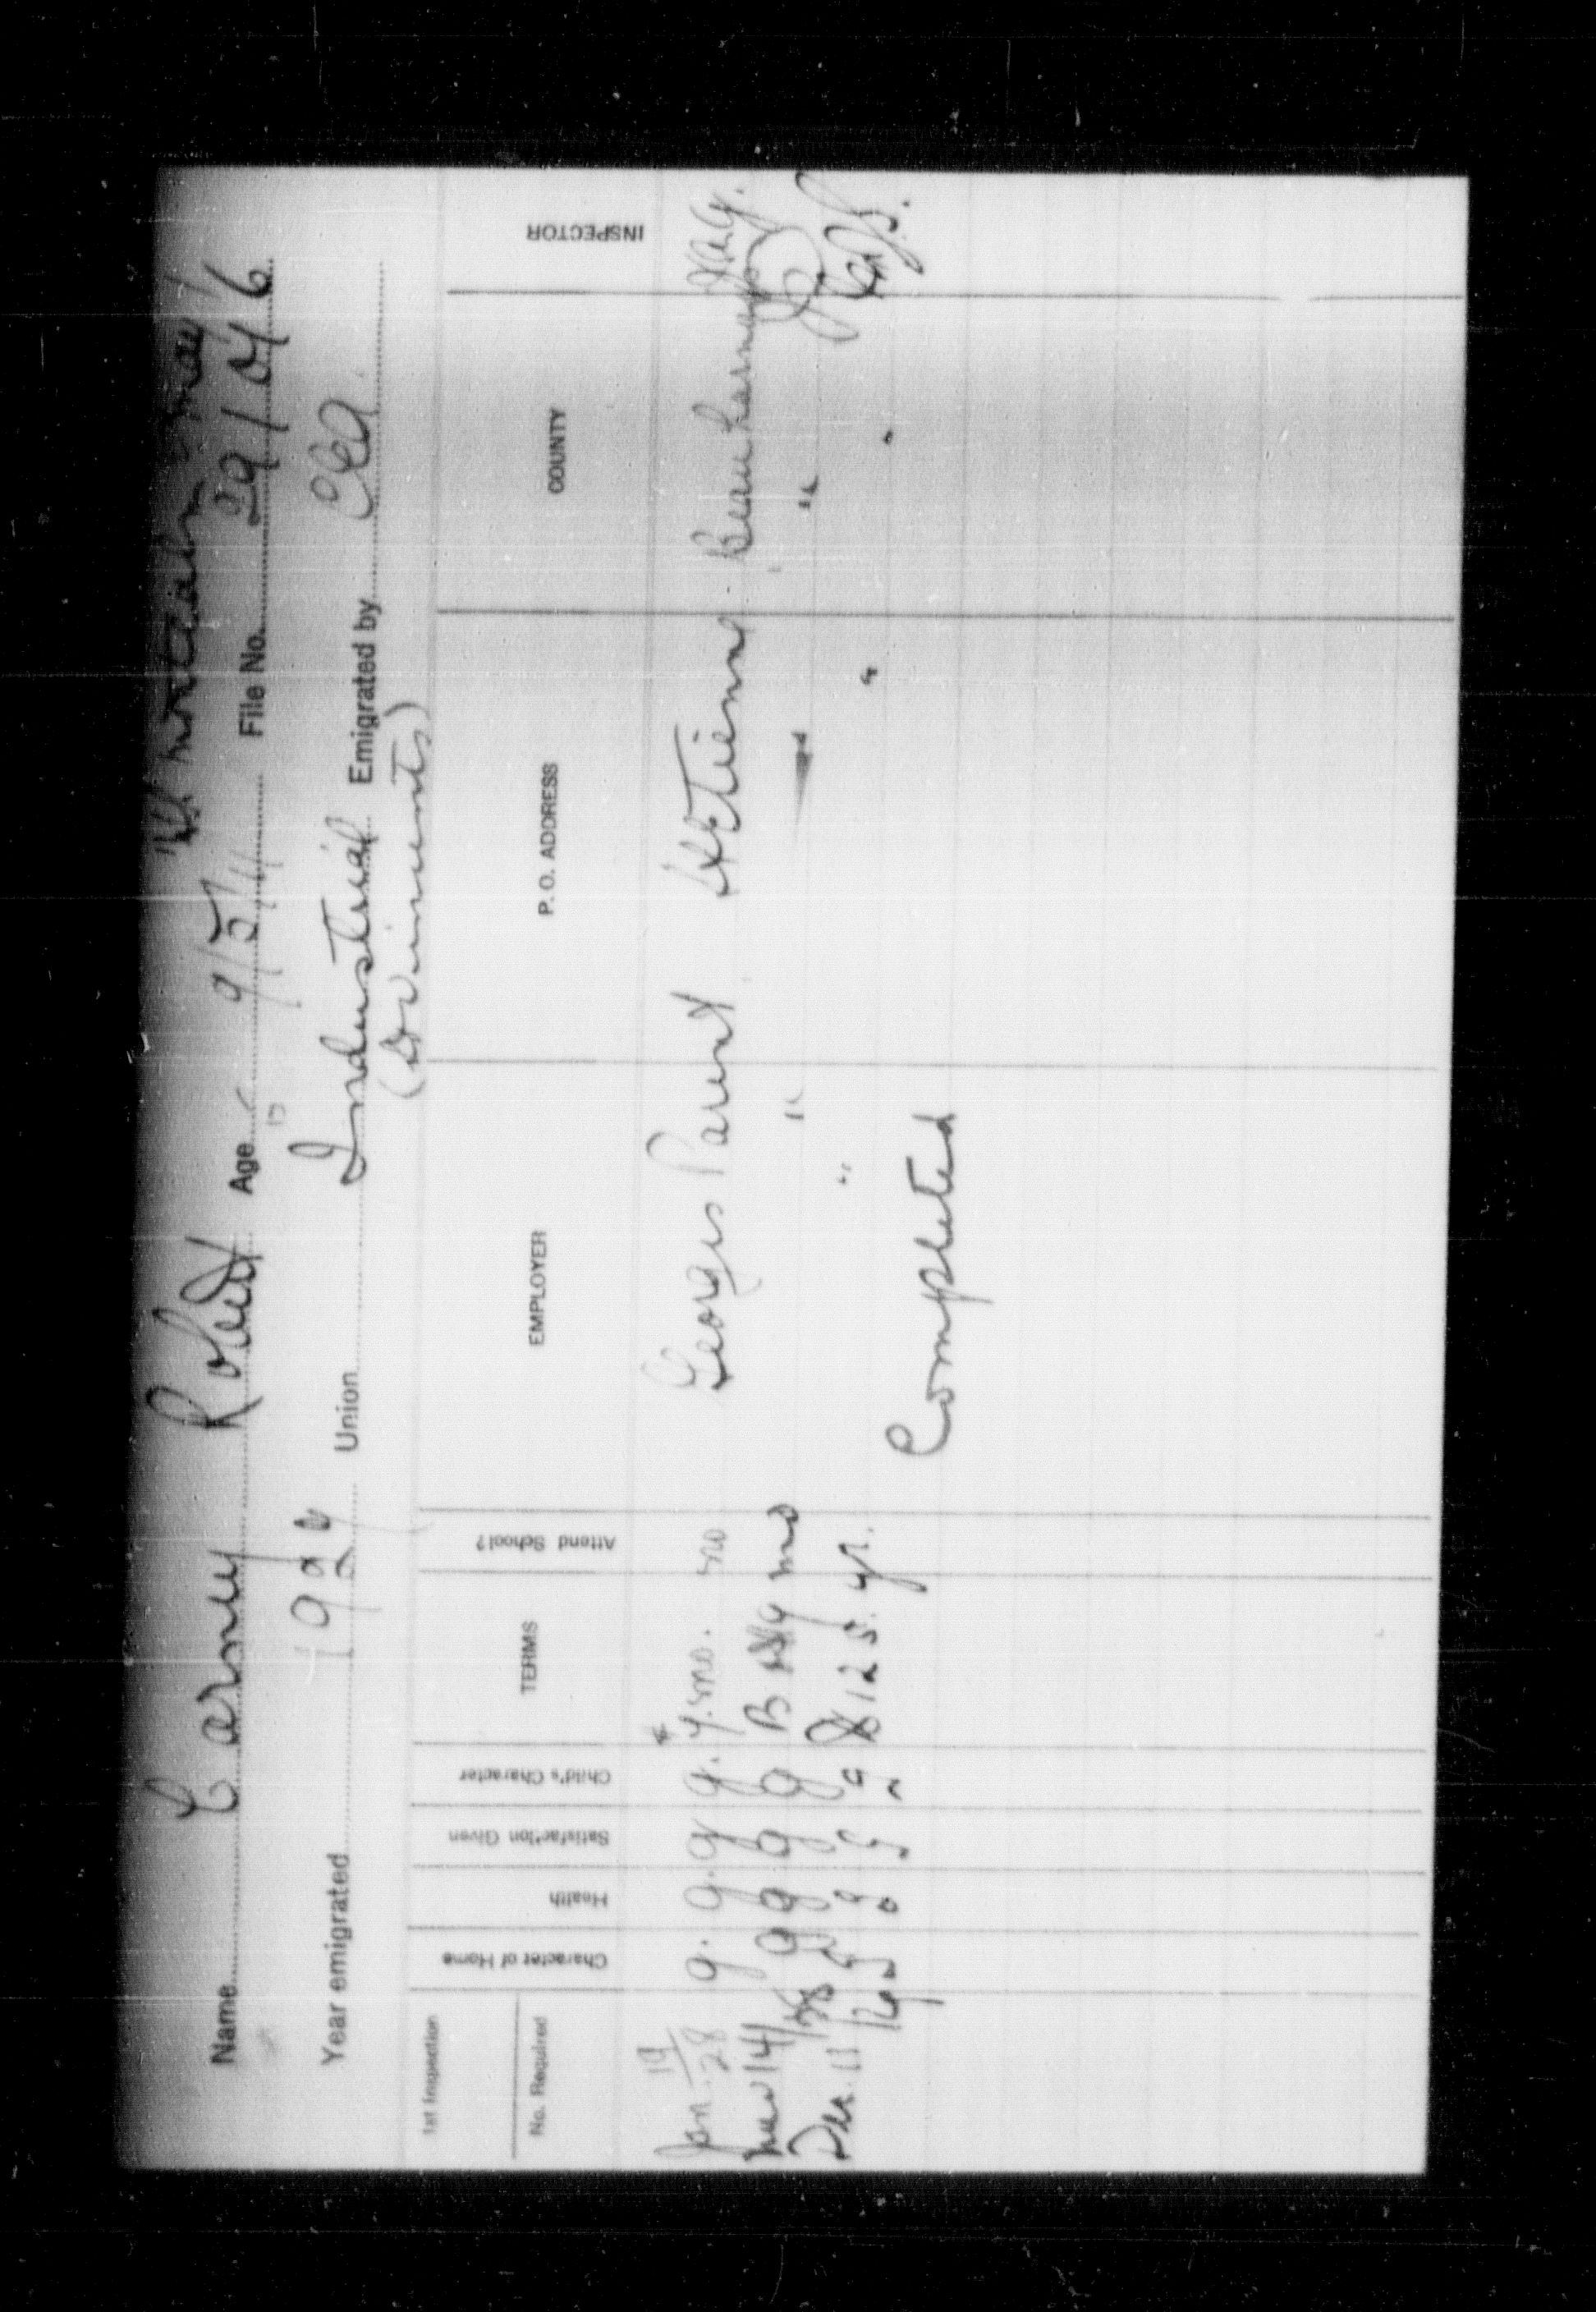 Montcalm May
Name Carney Robert Age 9/5/11 File No. 29106
Year emigrated 1924 Union Industrial Emigrated by CEA
1st Inspection
No. Required
Character of Home Health Satisfaction Given Child's Character TERMS Attend School? EMPLOYER P. O. ADDRESS COUNTY INSPECTOR
Jan 19/28 g. g. g g. mo. no Georges Parent St Etienne Beauharnois
g g g g B mo " " "
Dec. 11 g g g g $125 yr. " " "
Completed